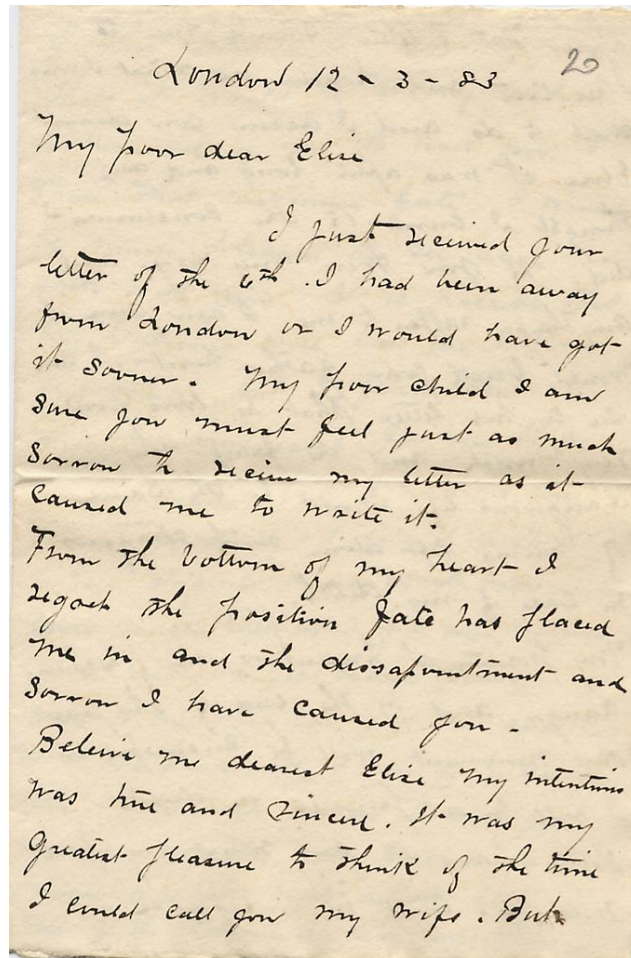 20
London 12 - 3 - 83
My poor dear Elise
I just received your
letter of the 6th. I had been away
from London or I would have got
it sooner. My poor child I am
sure you must feel just as much
sorrow to receive my letter as it
caused me to write it.
From the bottom of my heart I
regret the position fate has placed
me in and the dissapointment and
sorrow I have caused you -
Beleive me dearest Elise my intentions
was true and sincere. It was my
greatest pleasure to think of the time
I could call you my wife. But